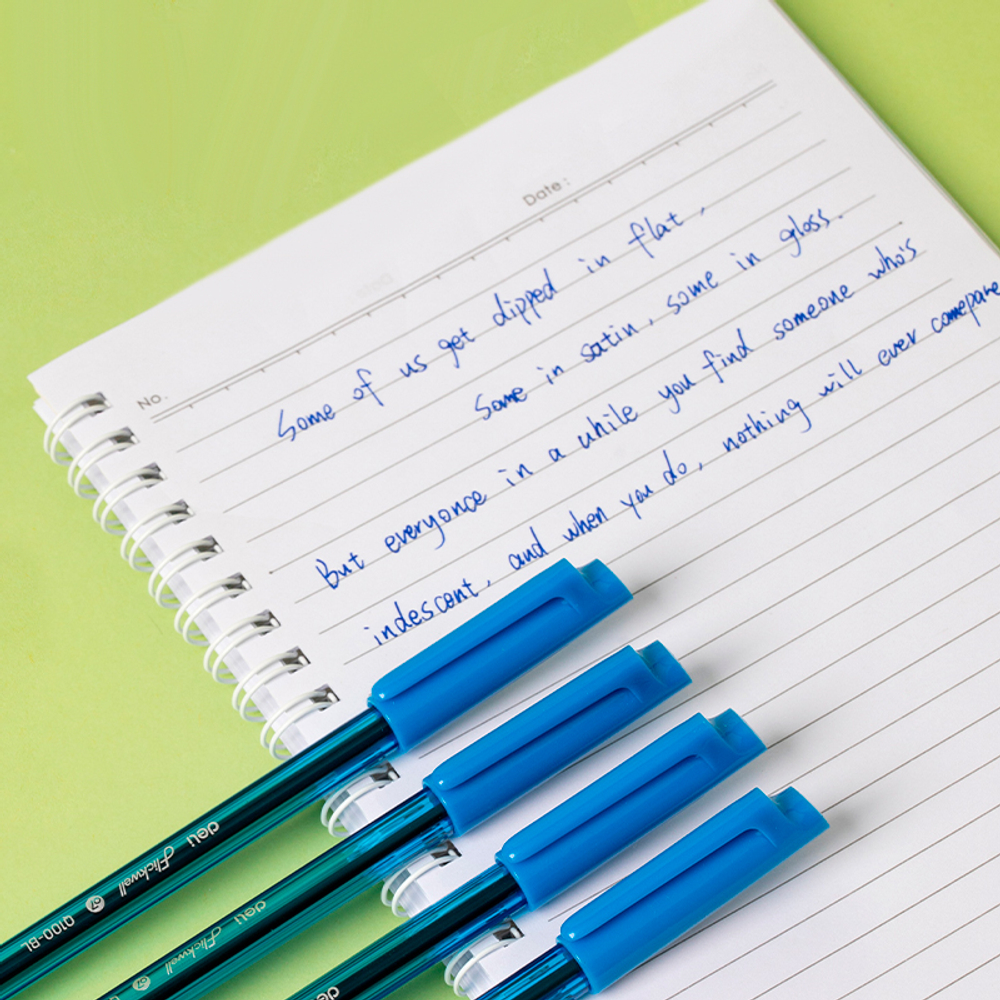 Date:
No.
Some of us get dipped in flat,
Some in satin, some in gloss.
But everyonce in a while you find someone who's
indescent, and when you do, nothing will ever comepare
deli Flickwell 07 Q100-BL
deli Flickwell 07
deli